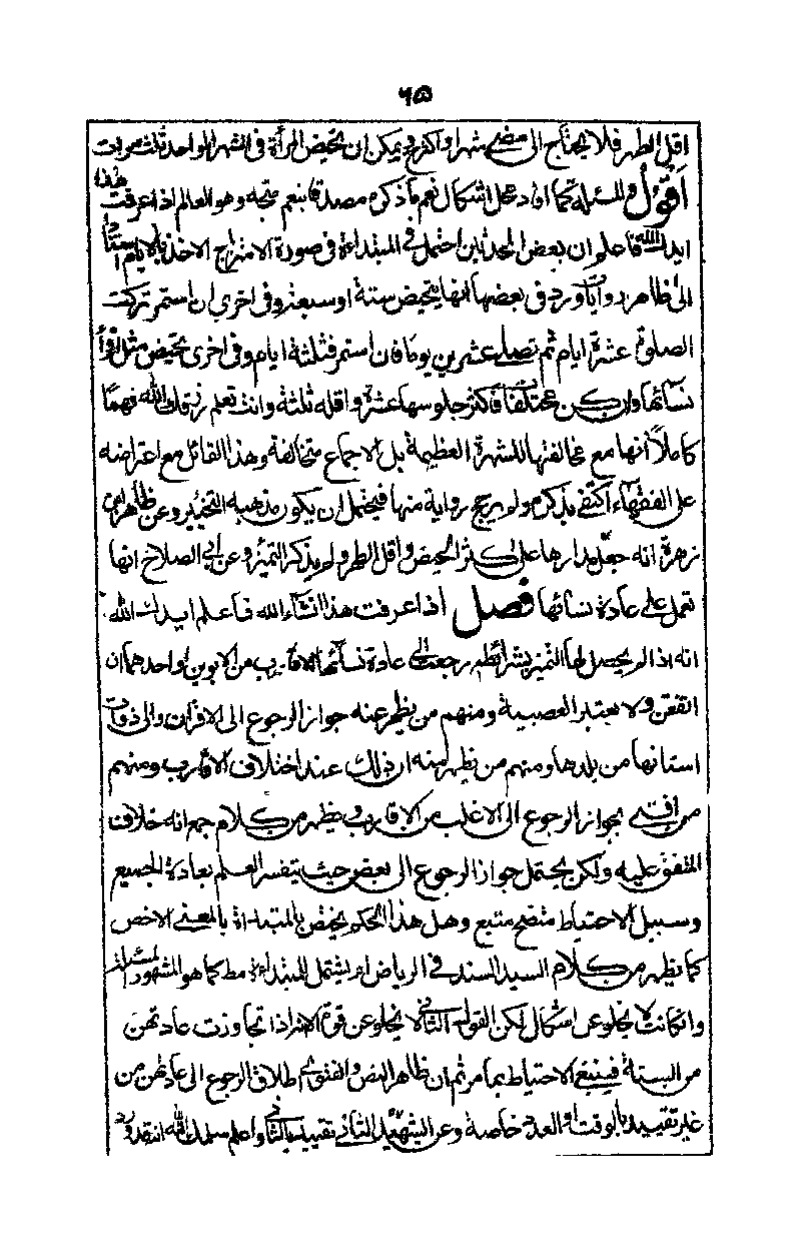 ٦٥
اقل الطهر فلا يحتاج الى مضى شهر او اكثر ويمكن ان تحيض المرأة فى الشهر الواحد ثلث مرات
اقول والمسئلة كما او دعمل اشكال نعم ما ذكره مصدقا بنعم متجه وهو العالم اذا عرفت هذا
ايدك الله فاعلم ان بعض المحدثين احتمل فى المبتداءة فى صورة الامتزاج الاخذ بالايام استنادا
الى ظاهر روايات ورد فى بعضها انها تتحيض ستة او سبعة وفى اخرى ان استمر تركت
الصلوة عشرة ايام ثم تصلى عشرين يوما فان استمر فثلثة ايام وفى اخرى تحيض مثل اقراء
نسائها وان كن مختلفا فاكثر جلوسها عشرة واقله ثلثة وانت تعلم رزقك الله فهما
كاملا انها مع مخالفتها للشهرة العظيمة بل الاجماع متخالفة وهذا القائل مع اعتراضه
على الفقهاء اكتفى بذكرهم ولم يرجح رواية منها فيحتمل ان يكون مذهبه التخيير وعن ظاهر ابن
زهرة انه جعل مدارها على اكثر الحيض واقل الطهر ولم يذكر التميز وعن ابى الصلاح انها
تعمل على عادة نسائها فصل اذا عرفت هذا انشاء الله فاعلم ايدك الله
انه اذا لم يحصل لها التميز بشرائطه رجعت الى عادة نسائها الاقارب من الابوين او احدهما ان
اتفقن ولا يعتبر العصبية ومنهم من يظهر عنه جواز الرجوع الى الاقران والى ذوات
اسنانها من بلدها ومنهم من يظهر منه ان ذلك عند اختلاف الاقارب ومنهم
من افتى بجواز الرجوع الى الاغلب من الاقارب ويظهر من كلام جمع انه خلاف
المتفق عليه ولكن يحتمل جواز الرجوع الى بعض حيث يتفسر العلم بعادة الجميع
وسبيل الاحتياط متضح متبع وهل هذا الحكم يختص بالمبتداة بالمعنى الاخص
كما يظهر من كلام السيد السند فى الرياض او يشتمل للمبتداءة مط كما هو المشهور المسئلة
وان كانت لا يخلو عن اشكال لكن القول الثانى لا يخلو عن قوة الا اذا تجاوزت عادتهن
من الستة فينبغى الاحتياط بما مر ثم ان ظاهر النص والفتوى اطلاق الرجوع الى عادتهن من
غير تقييد بالوقت او العدد خاصة وعن الشهيد الثانى تقييده بالثانى واعلم سلمك الله انه قد ورد